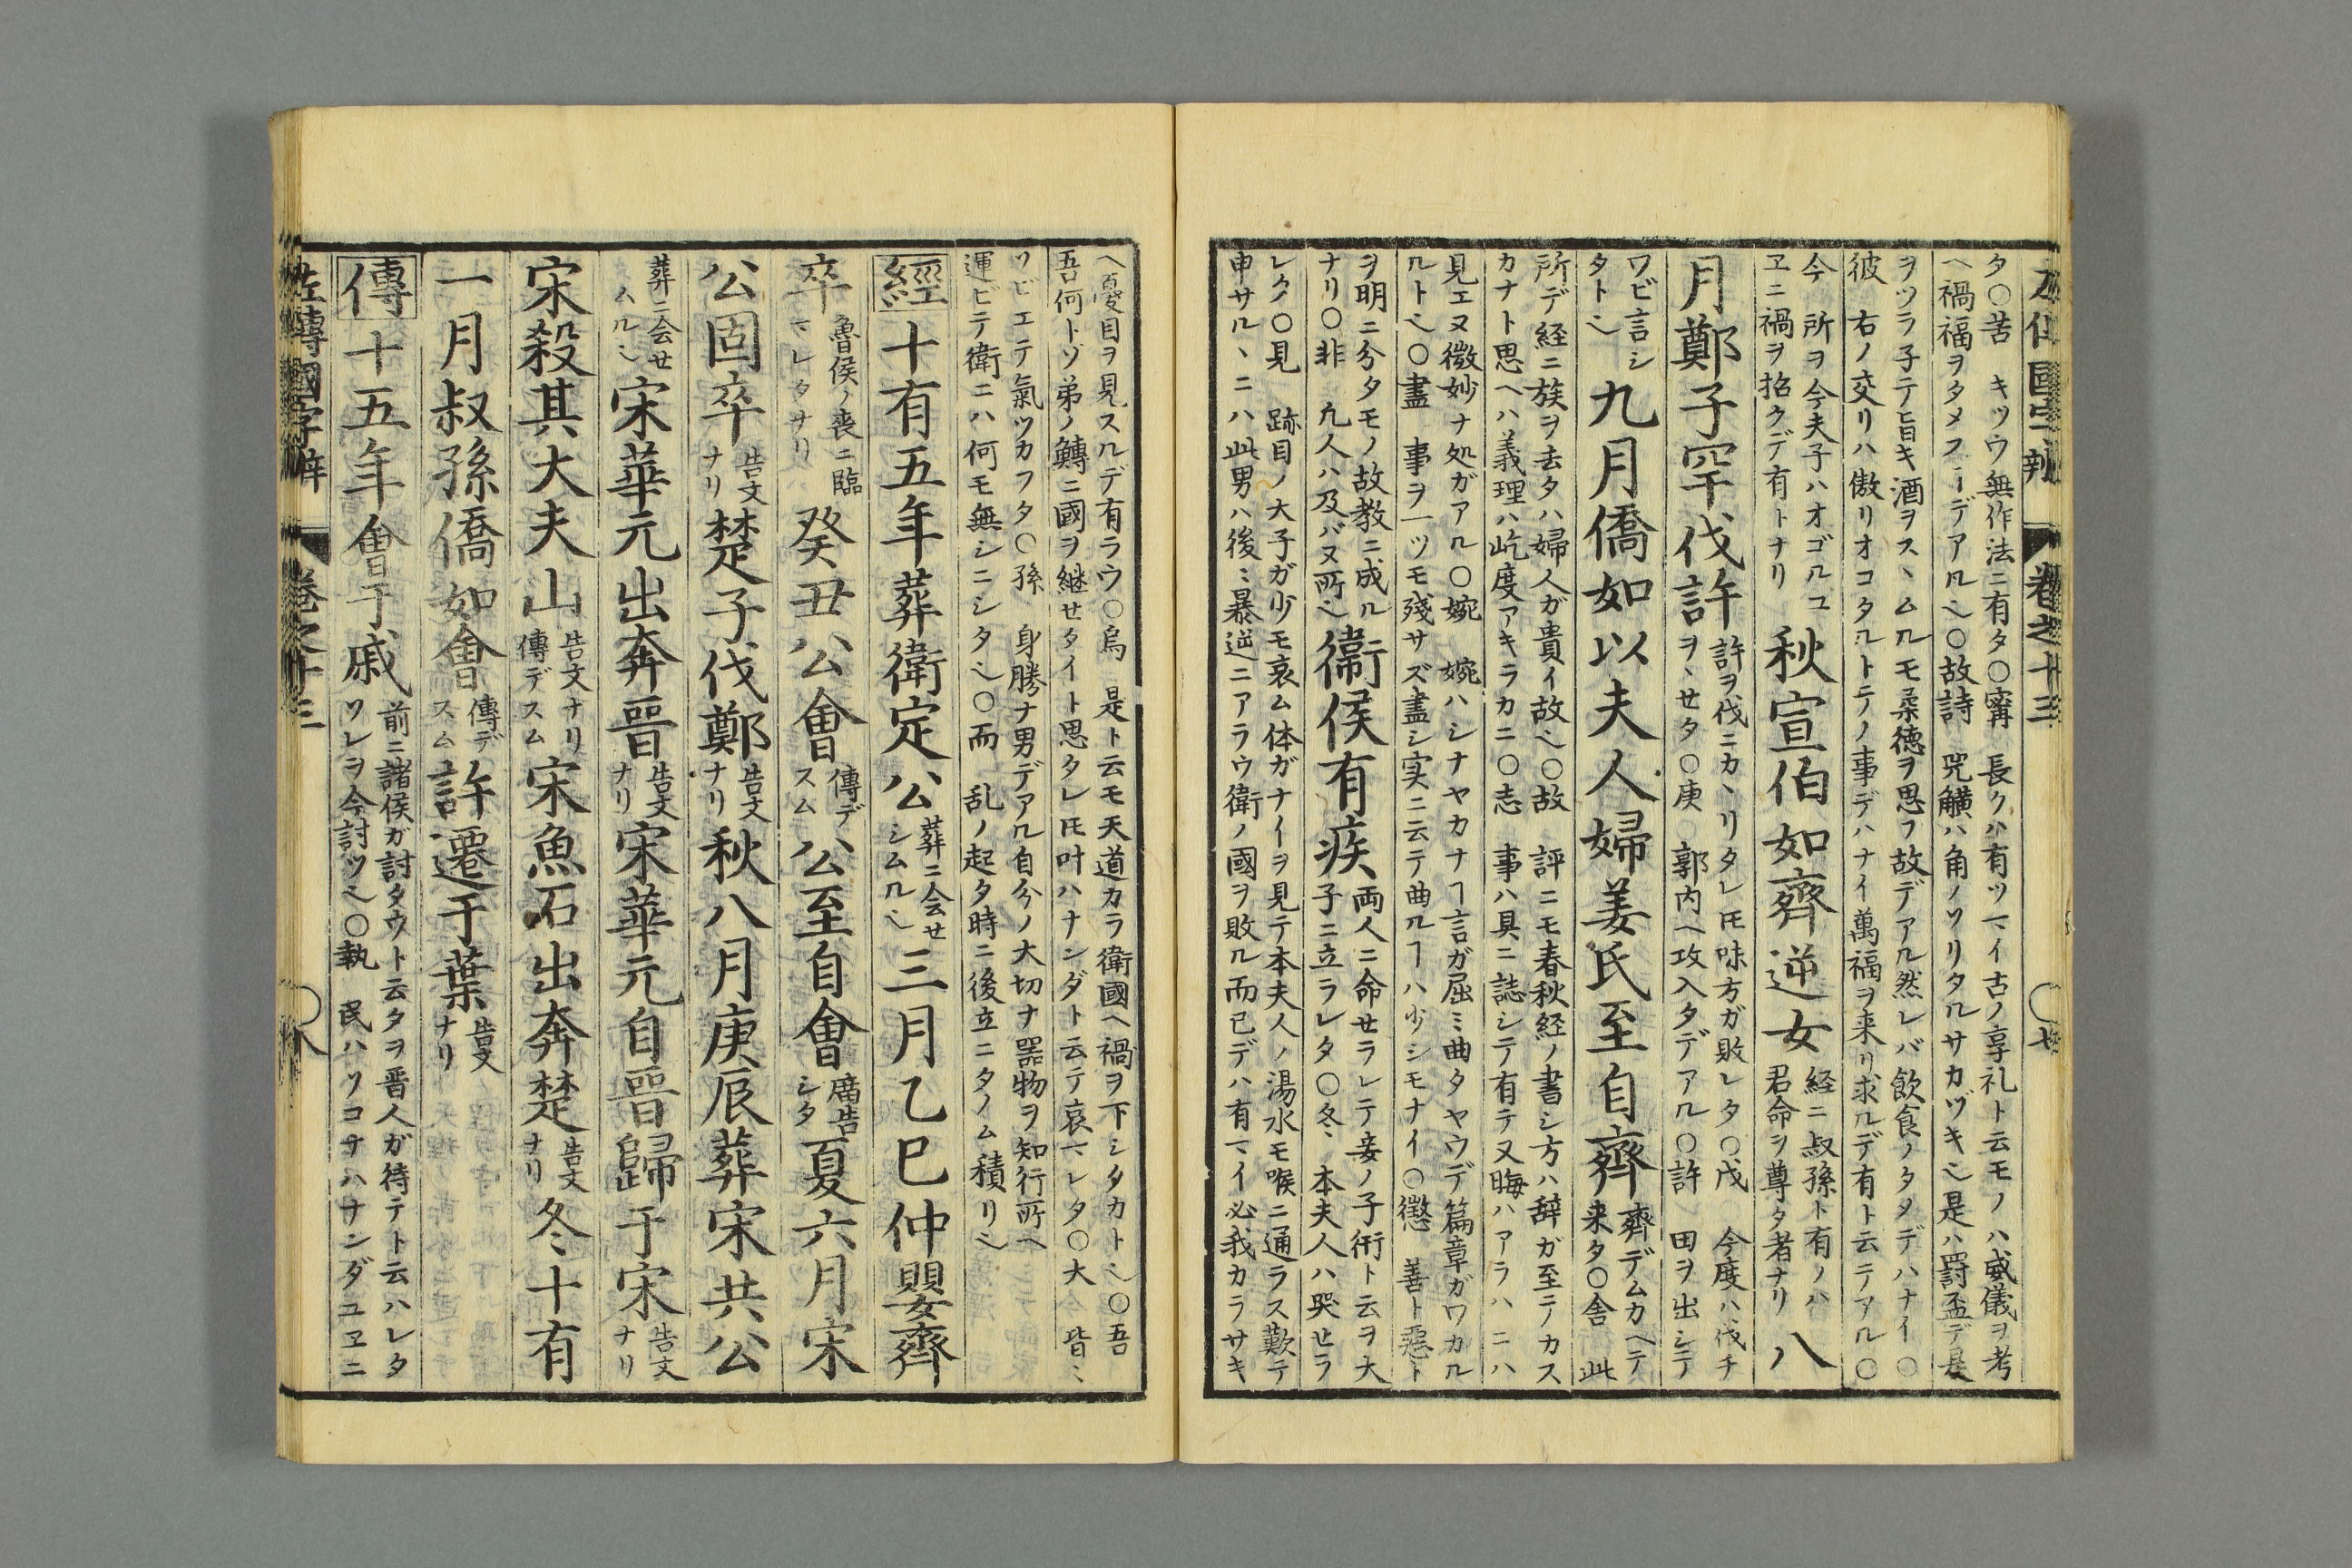 左傳國字解 巻之十三 〇七
タ〇苦 キツウ無作法ニ有タ〇寗 長クハ有ツマイ古ノ享礼ト云モノハ威儀ヲ考
ヘ禍福ヲタメスーデアルヘ〇故詩 兕觵ハ角ノソリタルサカヅキヘ是ハ罸盃デ是
ヲツラ子テ旨キ酒ヲスヽムルモ柔徳ヲ思フ故デアル然レバ飲食ノタタデハナイ〇
彼 右ノ交リハ傲リオコタルトテノ事デハナイ萬福ヲ来リ求ルデ有ト云テアル〇
今 所ヲ今夫子ハオゴルユ
ヱニ禍ヲ招クデ有トナリ
秋宣伯如齊逆女
経ニ叔孫ト有ノハ
君命ヲ尊タ者ナリ
八
月鄭子罕伐許
許ヲ伐ニカヽリタレ𪜈味方ガ敗レタ〇戊 今度ハ伐チ
ヲヽセタ〇庚 郭内ヘ攻入タデアル〇許 田ヲ出シテ
ワビ言シ
タトヘ
九月僑如以夫人婦姜氏至自齊
齊デムカヘテ
来タ〇舎 此
所デ経ニ族ヲ去タハ婦人ガ貴イ故ヘ〇故 評ニモ春秋経ノ書シ方ハ辞ガ至テカス
カナト思ヘハ義理ハ屹度アキラカニ〇志 事ハ具ニ誌シテ有テ又晦ハアラハニハ
見エヌ微妙ナ処ガアル〇婉 婉ハシナヤカナヿ言ガ屈ミ曲タヤウデ篇章ガワカル
ルトヘ〇盡 事ヲ一ツモ残サズ盡シ実ニ云テ曲ルヿハ少シモナイ〇懲 善ト悪ト
ヲ明ニ分タモノ故教ニ成ル
ナリ〇非 凡人ハ及バヌ所ヘ
衞侯有疾
両人ニ命セラレテ妾ノ子衎ト云ヲ大
子ニ立ラレタ〇冬、 本夫人ハ哭セラ
レタ〇見 跡目ノ大子ガ少モ哀ム体ガナイヲ見テ本夫人ノ湯水モ喉ニ通ラス歎テ
申サルヽニハ此男ハ後ニ暴逆ニアラウ衛ノ國ヲ敗ル而已デハ有マイ必我カラサキ
ヘ憂目ヲ見スルデ有ラウ〇烏 是ト云モ天道カラ衛國ヘ禍ヲ下シタカトヘ〇吾
吾何トゾ弟ノ鱄ニ國ヲ継セタイト思タレ𪜈叶ハナンダト云テ哀マレタ〇大 皆ミ
ソビエテ氣ツカフタ〇孫 身勝ナ男デアル自分ノ大切ナ器物ヲ知行所ヘ
運ビテ衛ニハ何モ無シニシタヘ〇而 乱ノ起タ時ニ後立ニタノム積リヘ
經十有五年葬衛定公
葬ニ会セ
シムルヘ
三月乙巳仲嬰齊
卒
魯侯ノ喪ニ臨
マレタナリ
癸丑公會
傳デ
スム
公至自會
廣告
シタ
夏六月宋
公固卒
告文
ナリ
楚子伐鄭
告文
ナリ
秋八月庚辰葬宋共公
葬ニ会セ
ムルヘ
宋華元出奔晉
告文
ナリ
宋華元自晉歸于宋
告文
ナリ
宋殺其大夫山
告文ナリ
傳デスム
宋魚石出奔楚
告文
ナリ
冬十有
一月叔孫僑如會
傳デ
スム
許遷于葉
告文
ナリ
傳十五年會于戚
前ニ諸侯ガ討タウト云タヲ晋人ガ待テト云ハレタ
ソレヲ今討ツヘ〇執 民ハソコナハナンダユヱニ
左傳國字解 巻之十三 〇八